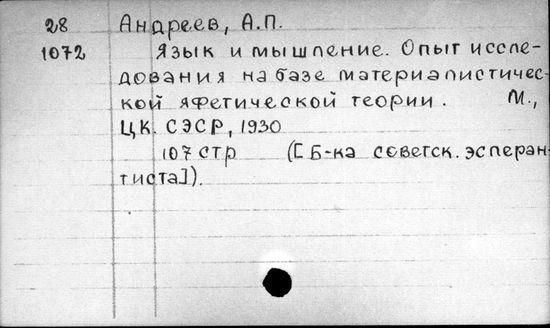 28 Андреев, А.П.
1072 Язык и мышление. Опыт иссле-
дования на базе материалистичес-
кой яфетической теории. М.,
ЦК. СЭСР, 1930
107 стр ([Б-ка советск. эсперан-
тиста]).